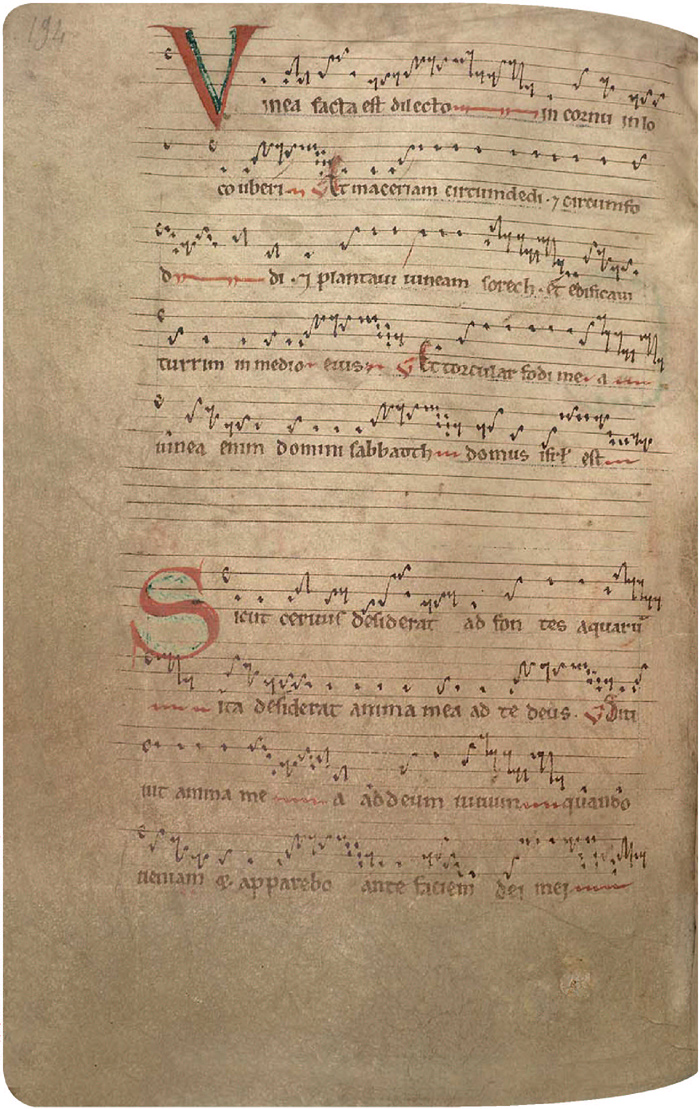 194
Vinea facta est dilecto in cornu in lo
co uberi Et maceriam circumdedi · ⁊ circumfo
di · ⁊ plantaui uineam sorech · et edificaui
turrim in medio eius Et torcular fodi in e a
uinea enim domini sabbaoth domus isrl est
Sicut ceruus desiderat ad fon tes aquarū
ita desiderat anima mea ad te deus · Siti
uit anima me a ad deum uiuum quando
ueniam & apparebo ante faciem dei mei